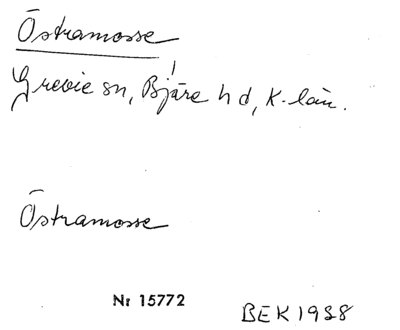 Östramosse
Grevie sn, Bjäre hd, K-län.
Östramosse
Nr 15772
BEK 1938